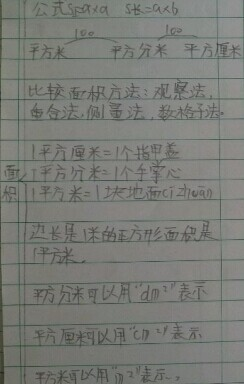 公式S=a×a S长=a×b
100 100
平方米 平方分米 平方厘米
比较面积方法:观察法,
重合法,测量法,数格子法。
1平方厘米=1个指甲盖
1平方分米=1个手掌心
面积 1平方米=1块地面(cí zhuān)
边长是1米的正方形面积是
1平方米。
平方分米可以用“dm²”表示
平方厘米可以用“cm²”表示
平方米可以用“m²”表示。